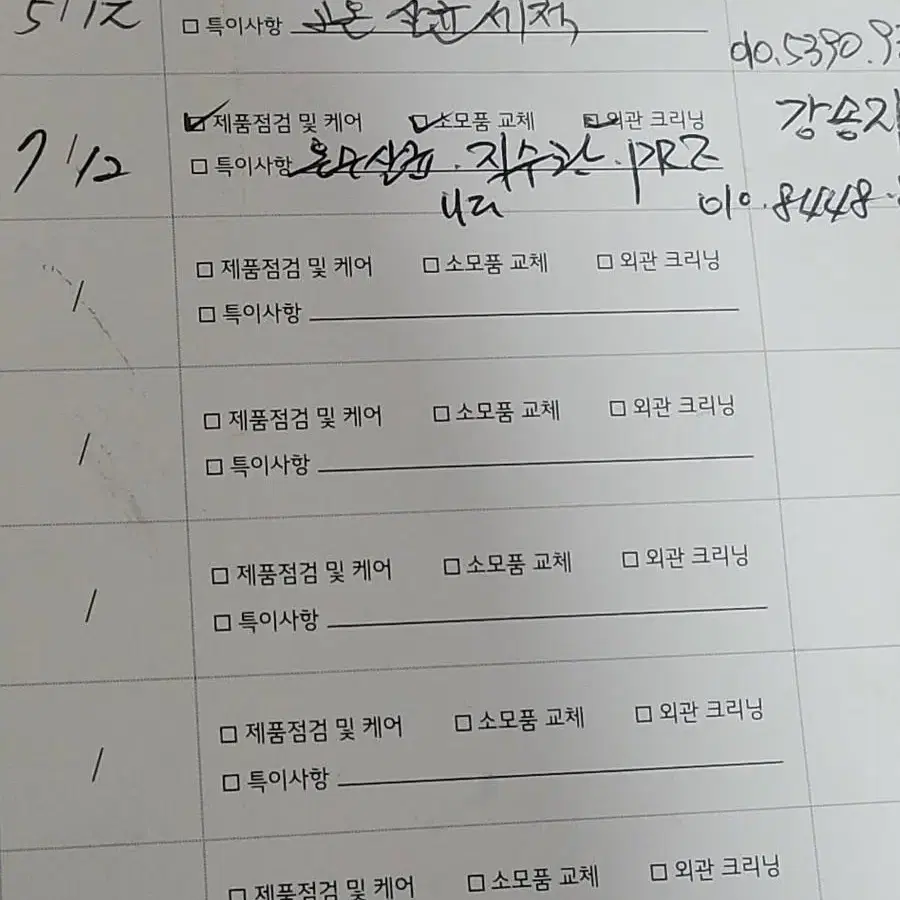 5/12
□ 특이사항 고온 살균 세척
010.5390.93
7/12
☑ 제품점검 및 케어 ☑ 소모품 교체 ☑ 외관 크리닝
강송지
□ 특이사항 온수살균. 직수관. PRE
010.8448.
/
□ 제품점검 및 케어 □ 소모품 교체 □ 외관 크리닝
□ 특이사항
/
□ 제품점검 및 케어 □ 소모품 교체 □ 외관 크리닝
□ 특이사항
/
□ 제품점검 및 케어 □ 소모품 교체 □ 외관 크리닝
□ 특이사항
/
□ 제품점검 및 케어 □ 소모품 교체 □ 외관 크리닝
□ 특이사항
□ 제품점검 및 케어 □ 소모품 교체 □ 외관 크리닝